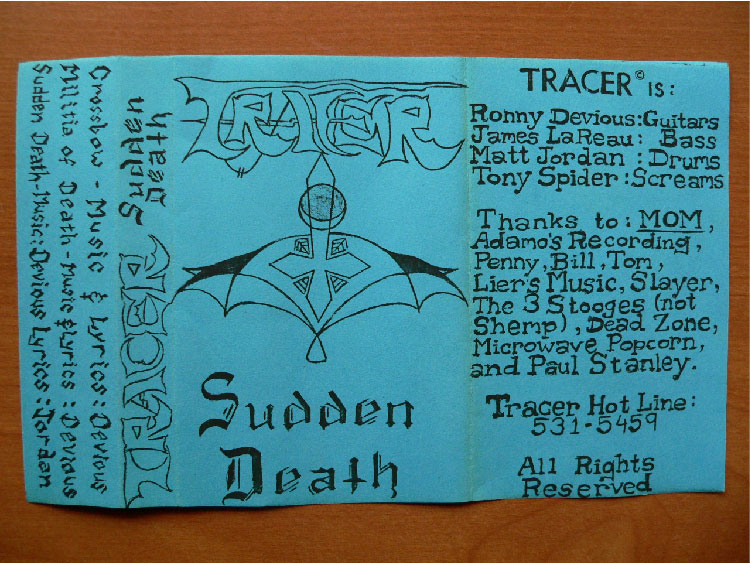 Crossbow - Music & Lyrics: Devious
Militia of Death - Music & Lyrics: Devious
Sudden Death - Music: Devious Lyrics: Jordan
Sudden
Death
TRACER
TRACER
Sudden
Death
TRACER© IS:
Ronny Devious: Guitars
James LaReau: Bass
Matt Jordan : Drums
Tony Spider: Screams
Thanks to: MOM,
Adamo's Recording,
Penny, Bill, Tom,
Lier's Music, Slayer,
The 3 Stooges (not
Shemp), Dead Zone,
Microwave Popcorn,
and Paul Stanley.
Tracer Hot Line:
531-5459
All Rights
Reserved